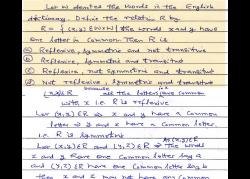 Let W denotes the words in the English
dictionary. Define the relation R by
R = { (x,y) ∈ W×W | the words x and y have
one letter in common Then R is
(a) Reflexive, symmetric and not transitive
(b) Reflexive, symmetric and transitive
(c) Reflexive, not symmetric and transitive
(d) Not reflexive, symmetric and transitive
because
(x,x) ∈ R all the letters are common
with x i.e. R is reflexive
Let (x,y) ∈ R ⇒ x and y have a Common
letter ⇒ y and x have a Common letter
i.e. R is symmetric
Let (x,y) ∈ R and (y,z) ∈ R ⇒ The words
x and y have one Common letter say a
and (y,z) ∈ R have one Common letter say b
then x and z may not have any common